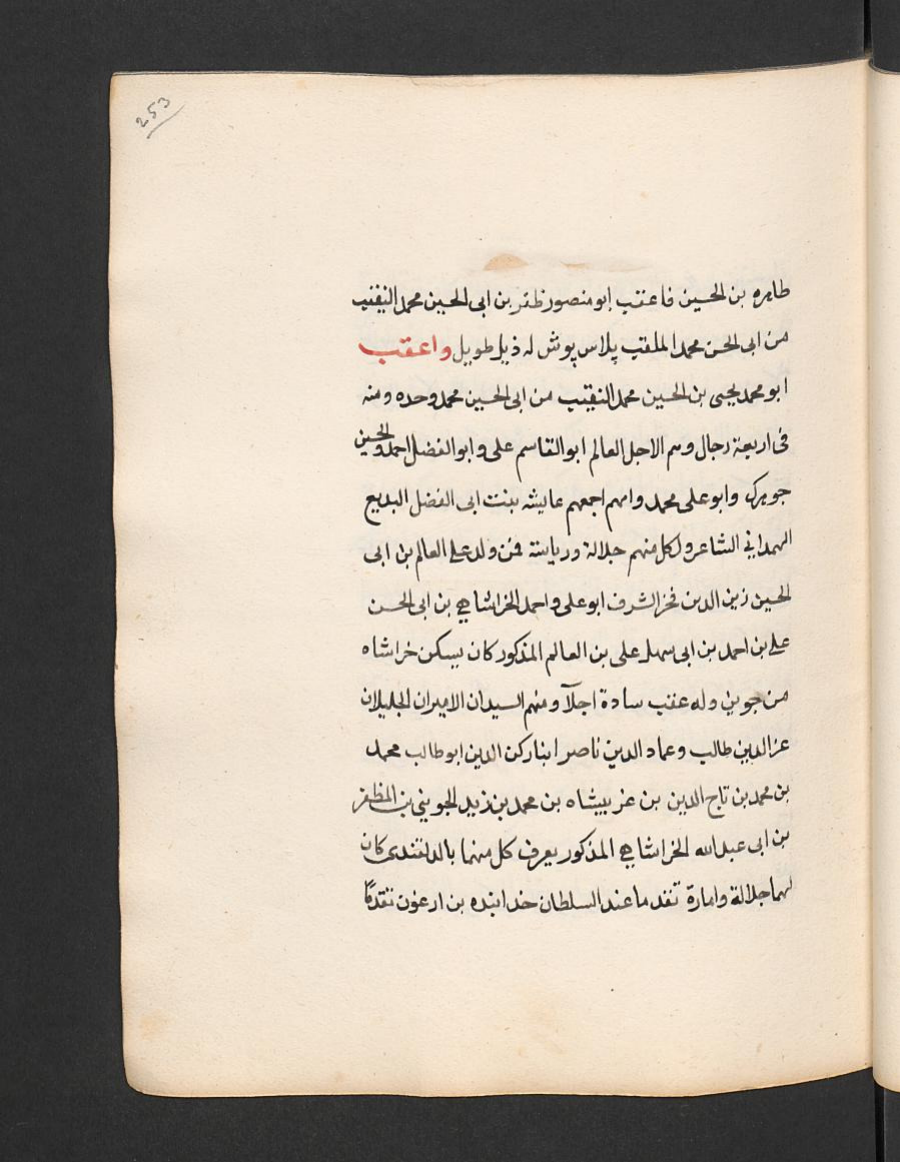 253
طاهره بن الحسين فاعقب ابو منصور ظفر بن ابى الحسين محمد النقيب
من ابى الحسن محمد الملقب پلاس پوش له ذيل طويل واعقب
ابو محمد يحيى بن الحسين محمد النقيب من ابى الحسين محمد وحده ومنه
فى اربعة رجال وهم الاجل العالم ابو القاسم على وابو الفضل احمد والحسين
جوهرك وابو على محمد وامهم اجمعهم عايشه بنت ابى الفضل البديع
الهمداني الشاعر ولكل منهم جلالة ورياسة فمن ولد على العالم بن ابى
الحسين زين الدين فخر الشرف ابو على واحمد الخراشاهى بن ابى الحسن
على بن احمد بن ابى سهل على بن العالم المذكور كان يسكن خراشاه
من جوين وله عقب سادة اجلآ ومنهم السيدان الاميران الجليلان
عز الدين طالب وعماد الدين ناصر ابنا ركن الدين ابو طالب محمد
بن محمد بن تاج الدين بن عربيشاه بن محمد بن زيد الجويني بن المظفر
بن ابى عبد الله الخراشاهى المذكور يعرف كل منهما بالدلقندى كان
لهما جلالة وامارة تقدما عند السلطان خدابنده بن ارغون تقدمًا